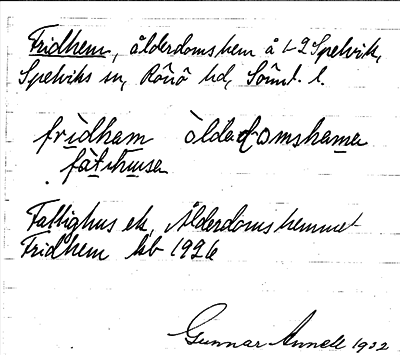 Fridhem, ålderdomshem å 1-2 Spelvik,
Spelviks sn, Rönö hd, Söml. l.
frìdham òldadomshema
fàthusa
Fattighus ek, Ålderdomshemmet
Fridhem kb 1926
Gunnar Annell 1932